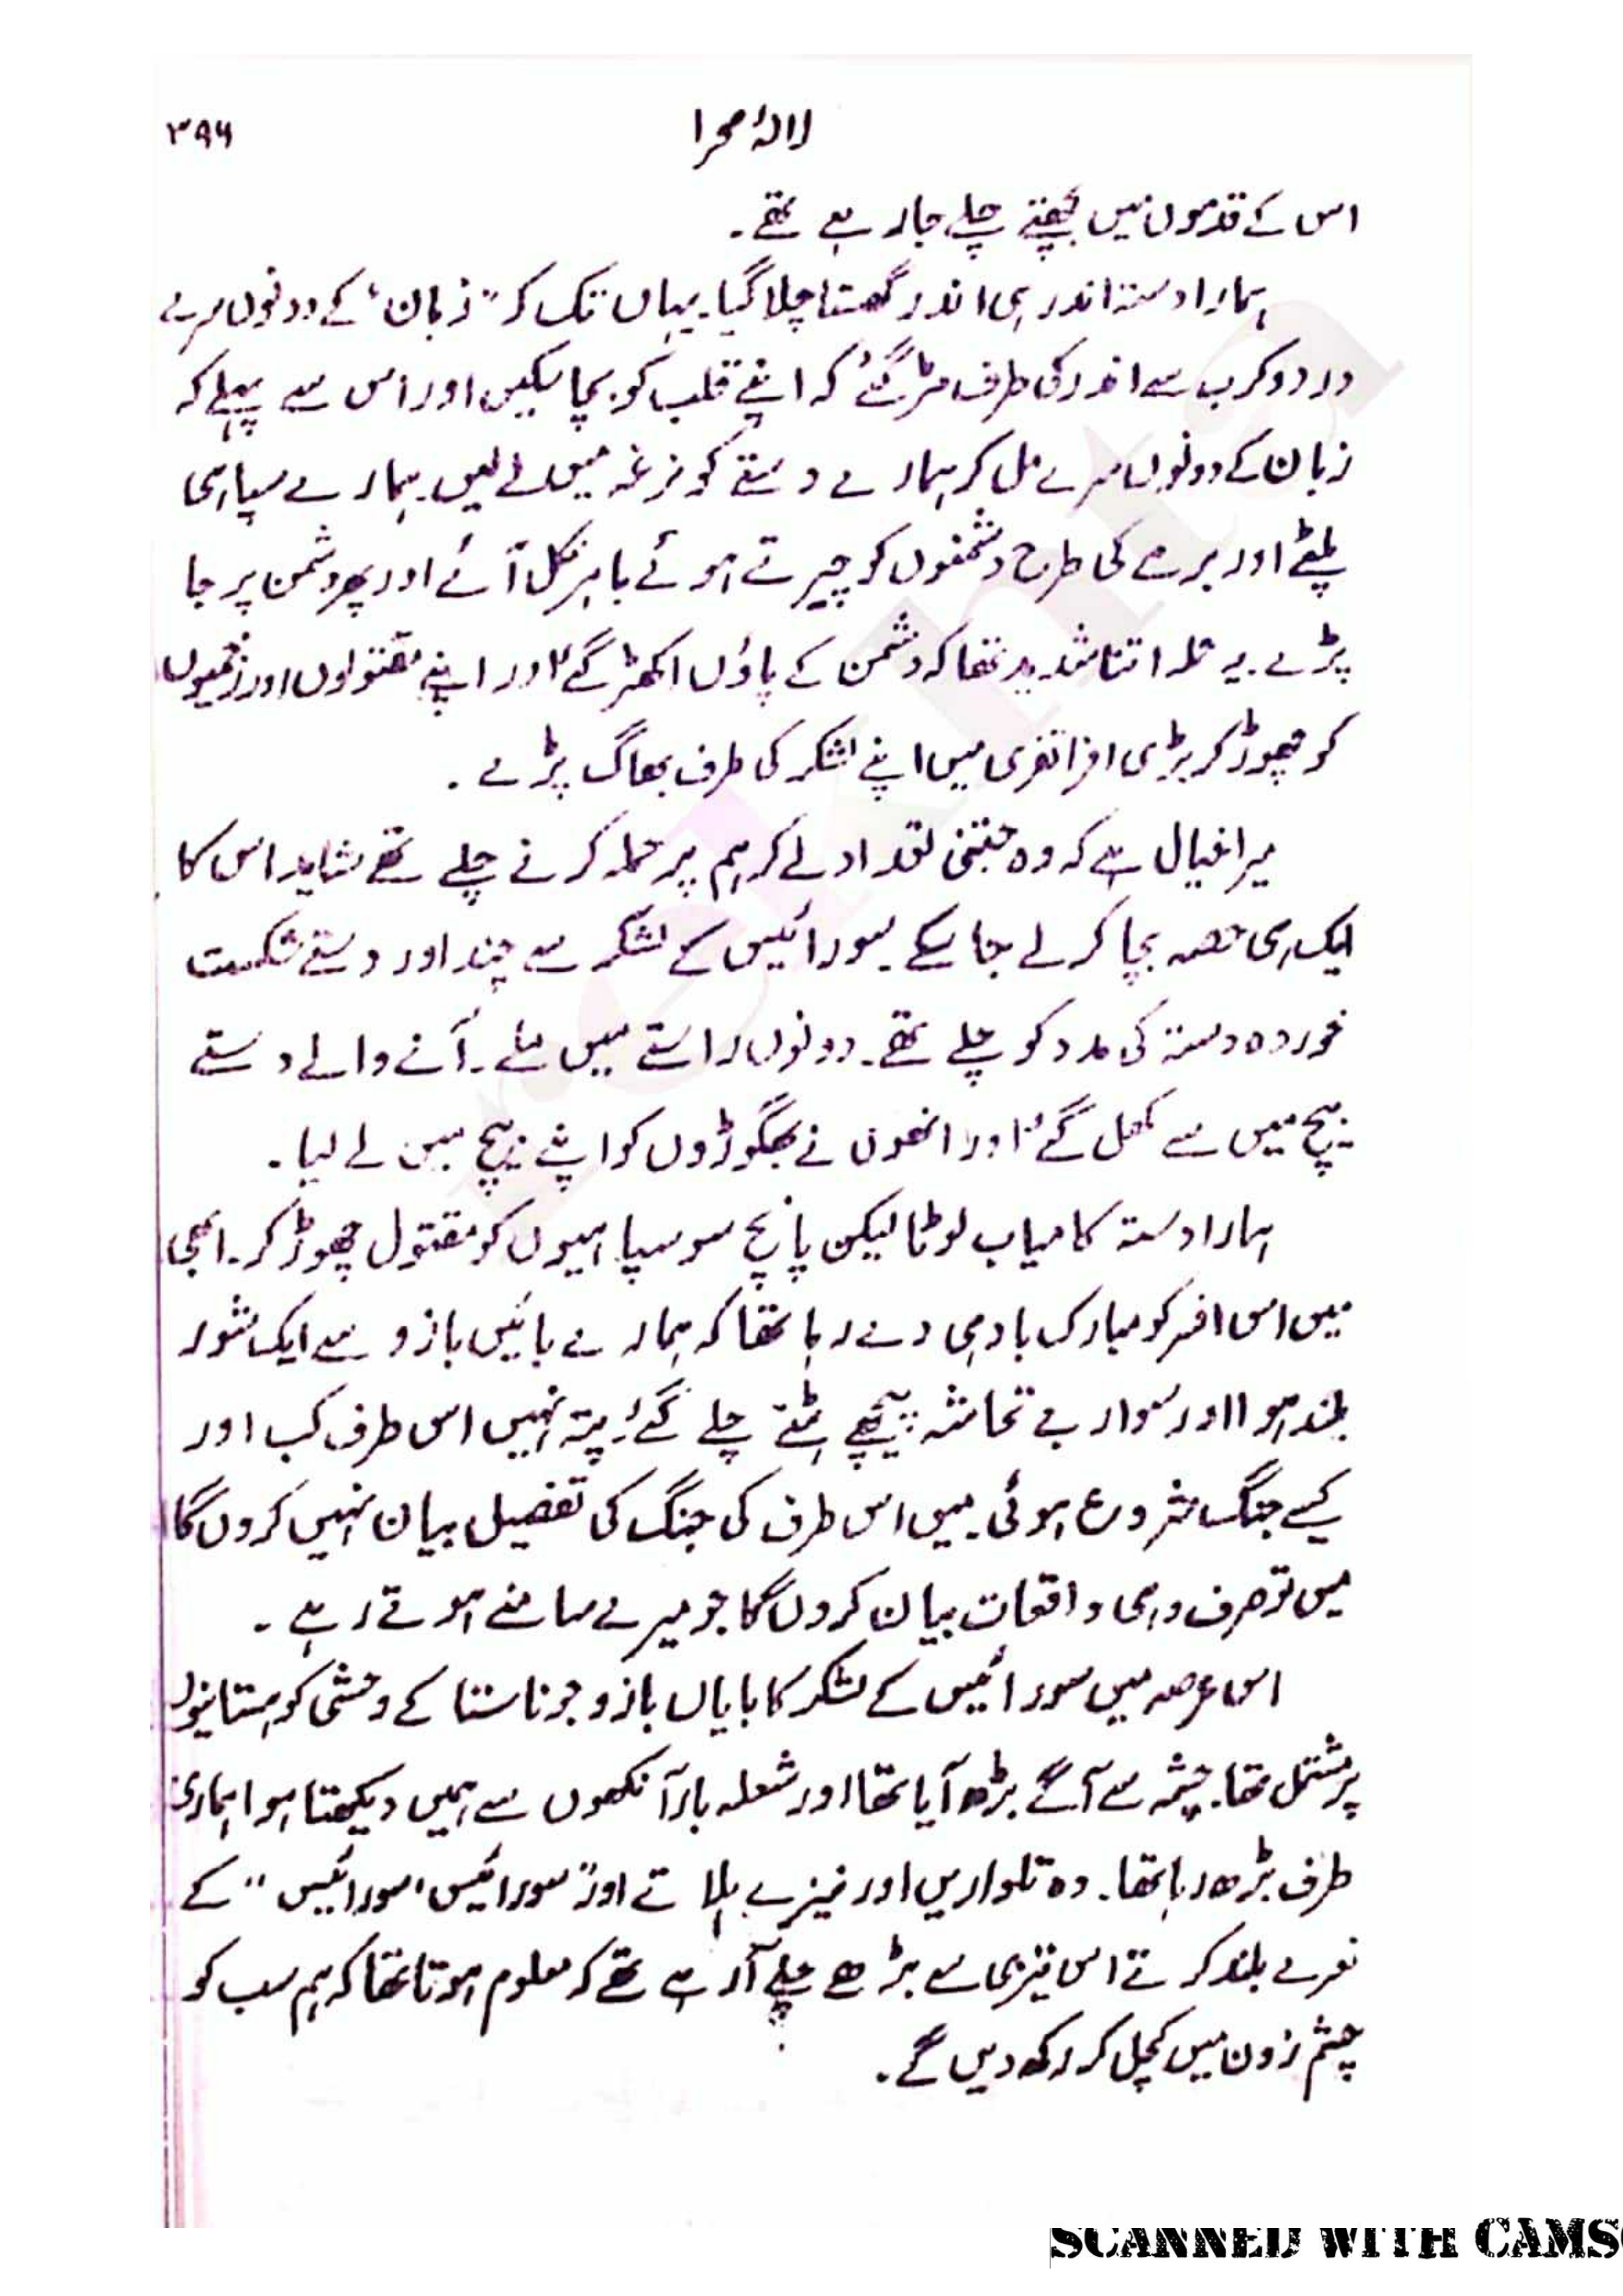 ۳۹۶
لالۂ صحرا
اس کے قدموں میں بچھتے چلے جا رہے تھے۔
ہمارا دستہ اندر ہی اندر گھستا چلا گیا۔ یہاں تک کہ "زبان" کے دونوں سرے
درد و کرب سے اندر کی طرف مڑ گئے کہ اپنے قلب کو بچا سکیں اور اس سے پہلے کہ
زبان کے دونوں سرے مل کر ہمارے دستے کو نرغہ میں لے لیں۔ ہمارے سپاہی
پلٹے اور برمے کی طرح دشمنوں کو چیرتے ہوئے باہر نکل آئے اور پھر دشمن پر جا
پڑے۔ یہ حملہ اتنا شدید تھا کہ دشمن کے پاؤں اکھڑ گئے اور اپنے مقتولوں اور زخمیوں
کو چھوڑ کر بڑی افراتفری میں اپنے لشکر کی طرف بھاگ پڑے۔
میرا خیال ہے کہ وہ جتنی تعداد لے کر ہم پر حملہ کرنے چلے تھے شاید اس کا
ایک ہی حصہ بچا کر لے جا سکے۔ سورائیس کے لشکر سے چند اور دستے شکست
خوردہ دستہ کی مدد کو چلے تھے۔ دونوں راستے میں ملے۔ آنے والے دستے
بیچ میں سے کھل گئے اور انھوں نے بھگوڑوں کو اپنے بیچ میں لے لیا۔
ہمارا دستہ کامیاب لوٹا لیکن پانچ سو سپاہیوں کو مقتول چھوڑ کر۔ ابھی
میں اس افسر کو مبارک باد ہی دے رہا تھا کہ ہمارے بائیں بازو سے ایک شور
بلند ہوا اور سوار بے تحاشہ پیچھے ہٹتے چلے گئے۔ پتہ نہیں اس طرف کب اور
کیسے جنگ شروع ہوئی۔ میں اس طرف کی جنگ کی تفصیل بیان نہیں کروں گا
میں تو صرف وہی واقعات بیان کروں گا جو میرے سامنے ہوتے رہے۔
اس عرصہ میں سورائیس کے لشکر کا بایاں بازو جو ناستا کے وحشی کوہستانیوں
پر مشتمل تھا۔ چشمہ سے آگے بڑھ آیا تھا اور شعلہ بار آنکھوں سے ہمیں دیکھتا ہوا ہماری
طرف بڑھ رہا تھا۔ وہ تلواریں اور نیزے ہلاتے اور "سورائیس، سورائیس" کے
نعرے بلند کرتے اس تیزی سے بڑھے چلے آ رہے تھے کہ معلوم ہوتا تھا کہ ہم سب کو
چشم زدن میں کچل کر رکھ دیں گے۔
rekhta
SCANNED WITH CAMS